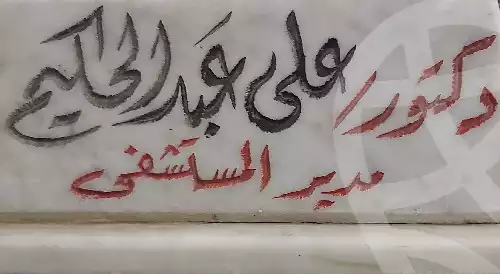 دكتور/ على عبد الحكيم
مدير المستشفى